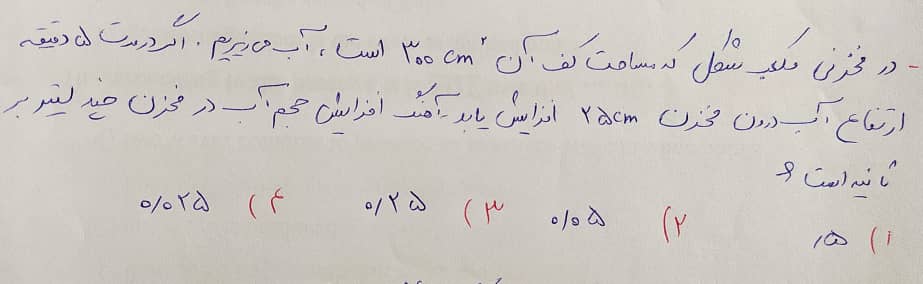 - در مخزنی مکعب شکل که مساحت کف آن ۳۰۰ cm² است، آب می‌ریزیم. اگر در مدت ۵ دقیقه
ارتفاع آب درون مخزن ۲۵cm افزایش یابد آهنگ افزایش حجم آب در مخزن چند لیتر بر
ثانیه است؟
۱) ۰/۵ ۲) ۰/۰۵ ۳) ۰/۲۵ ۴) ۰/۰۲۵